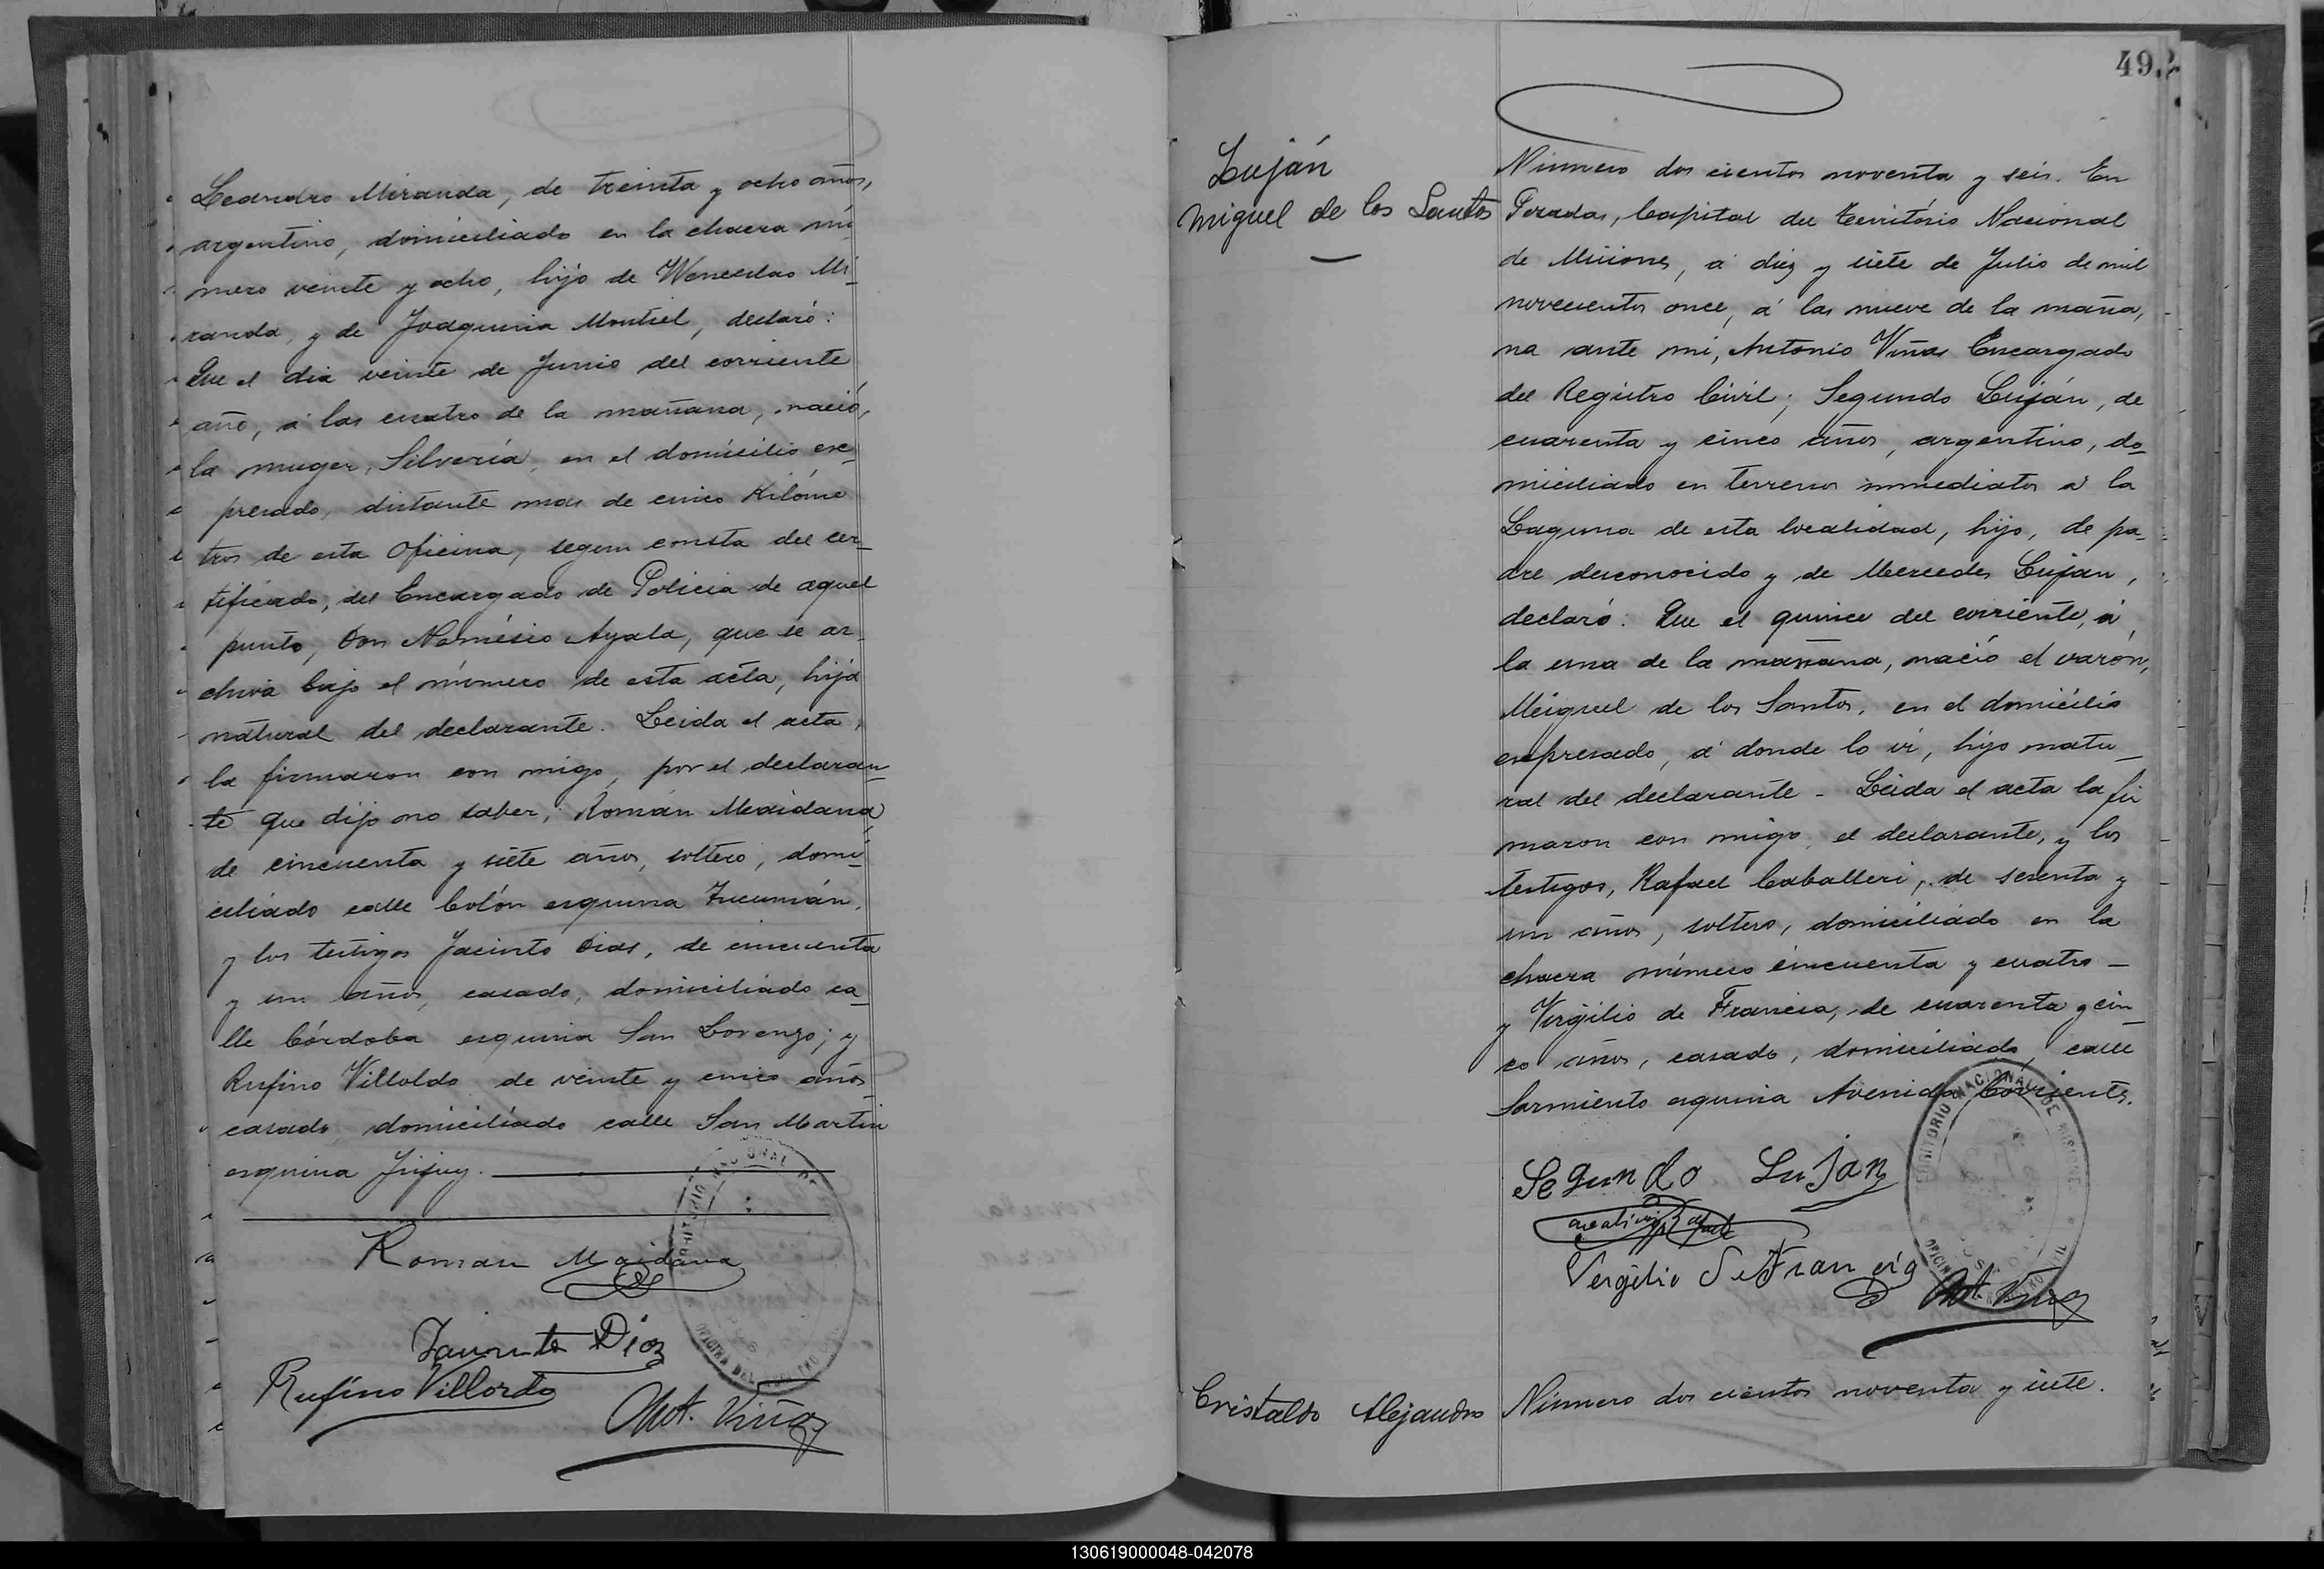 Leandro Miranda, de treinta y ocho años,
argentino, domiciliado en la chacra nú
mero veinte y ocho, hijo de Wenceslao Mi
randa, y de Joaquina Montiel, declaró:
Que el dia veinte de Junio del corriente
año, a las cuatro de la mañana, nació,
la muger, Silveria, en el domicilio ex
presado, distante mas de cinco Kilóme
tros de esta Oficina, segun consta del cer_
tificado, del Encargado de Policia de aquel
punto, Don Nemésio Ayala, que se ar_
chiva bajo el número de esta acta, hija
natural del declarante. Leida el acta,
la firmaron con migo, por el declaran
te que dijo no saber, Román Maidana
de cincuenta y siete años, soltero, domi
ciliado calle Colón esquina Tucumán,
y los testigos Jacinto Dias, de cincuenta
y un años, casado, domiciliado ca_
lle Córdoba esquina San Lorenzo; y
Rufino Villoldo de veinte y cinco años
casado, domiciliado calle San Martin
esquina Jujuy.
TERRITORIO NACIONAL DE
OFICINA DEL REGISTRO
Roman Maidana
Jacinto Diaz
Rufino Villordo
Ant. Viñas
492
Luján
Miguel de los Santos
Número dos cientos noventa y seis. En
Posadas, Capital del Território Nacional
de Misiones, á diez y siete de Julio de mil
novecientos once, á las nueve de la maña,
na ante mi, Antonio Viñas Encargado
del Registro Civil; Segundo Luján, de
cuarenta y cinco años, argentino, do_
miciliado en terrenos inmediatos á la
Laguna de esta localidad, hijo, de pa_
dre desconocido y de Mercedes Lujan,
declaró: Que el quince del corriente, á
la una de la mañana, nació el varon,
Miguel de los Santos, en el domicilio
expresado, á donde lo vi, hijo natu_
ral del declarante - Leida el acta la fir
maron con migo, el declarante, y los
testigos, Rafael Caballeri, de sesenta y
un años, soltero, domiciliado en la
chacra número cincuenta y cuatro -
y Virgilio de Francia, de cuarenta y cin_
co años, casado, domiciliado, calle
Sarmiento esquina Avenida Corrientes.
TERRITORIO NACIONAL DE MISIONES
Segundo Lujan
Vergilio De Francia
Ant. Viñas
Cristaldo Alejandro
Número dos cientos noventa y siete.
130619000048-042078